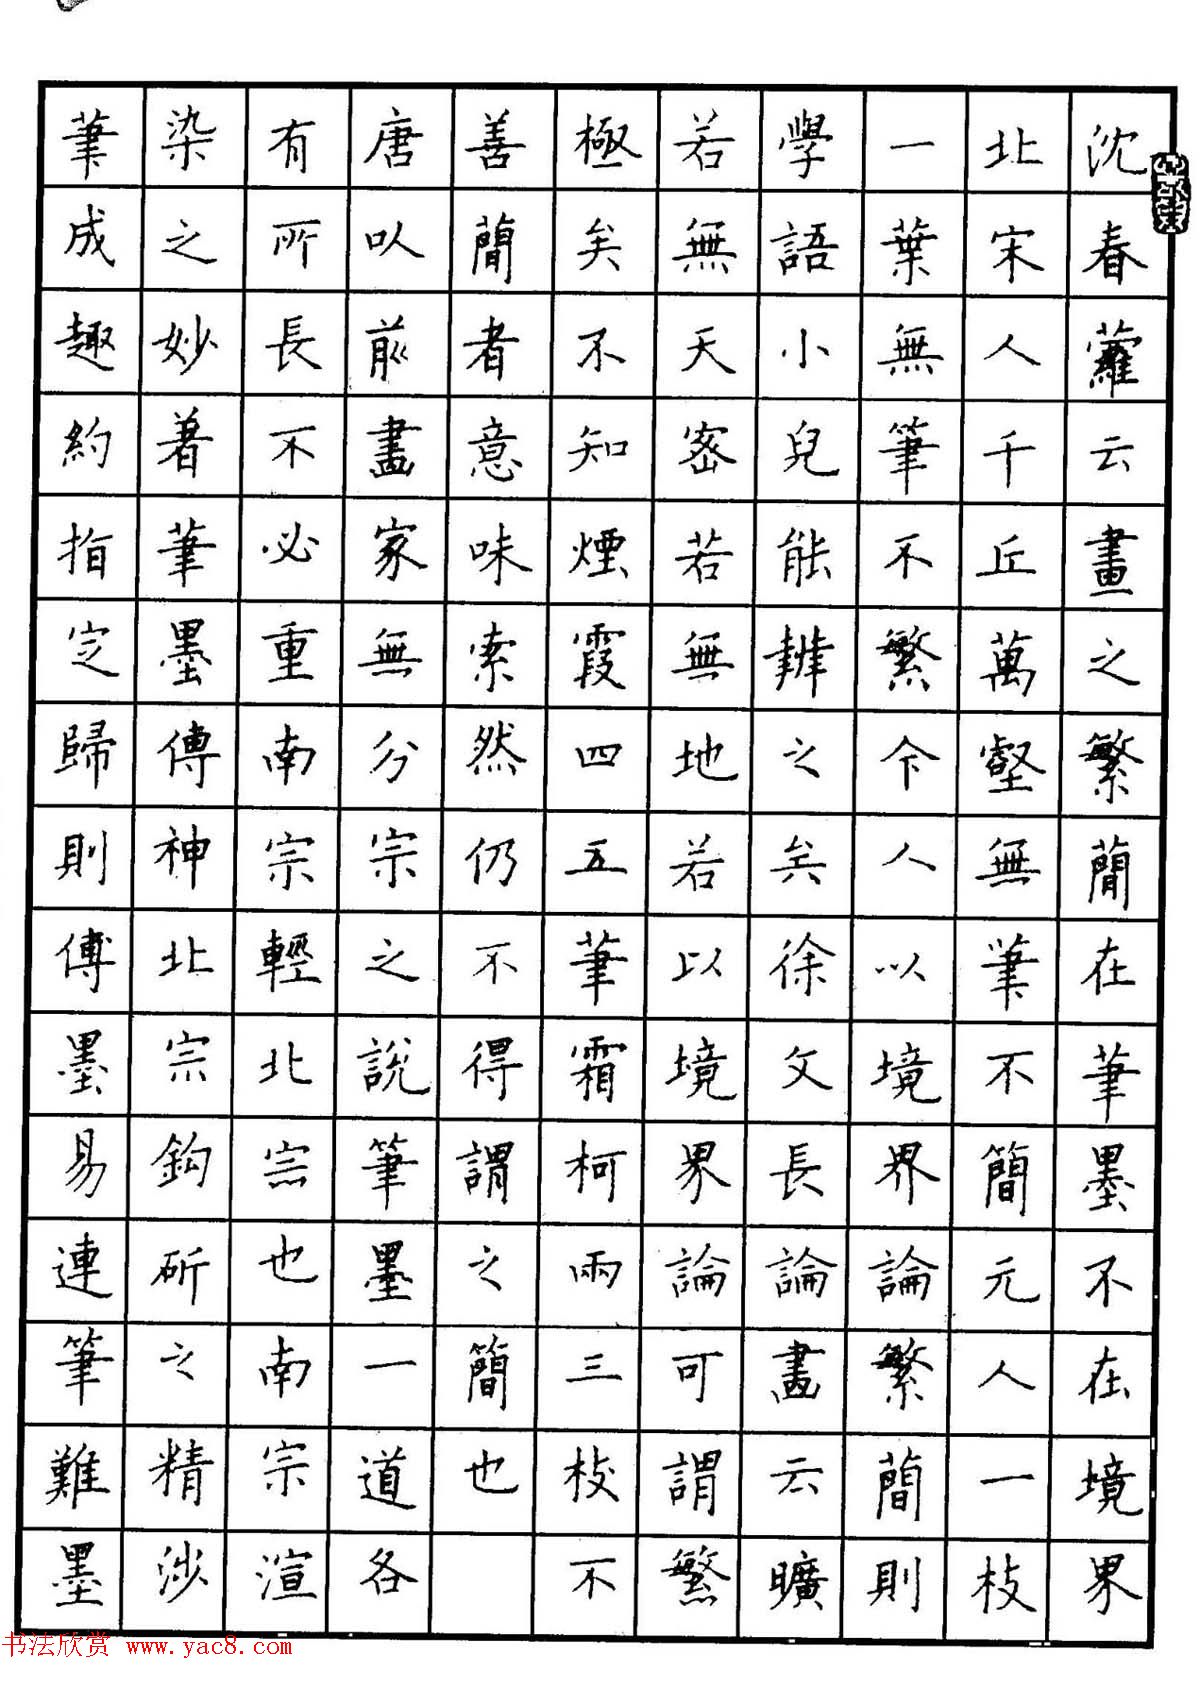 沈春蘿云畫之繁蕳在筆墨不在境界
北宋人千丘萬壑無筆不簡元人一枝
一葉無筆不繁今人以境界論繁蕳則
學語小兒能辨之矣徐文長論畫云曠
若無天密若無地若以境界論可謂繁
極矣不知煙霞四五筆霜柯兩三枝不
善蕳者意味索然仍不得謂之簡也
唐以前畫家無分宗之說筆墨一道各
有所長不必重南宗輕北宗也南宗渲
染之妙著筆墨傳神北宗鈎斫之精涉
筆成趣約指定歸則傳墨易連筆難墨
书法欣赏 www.yac8.com